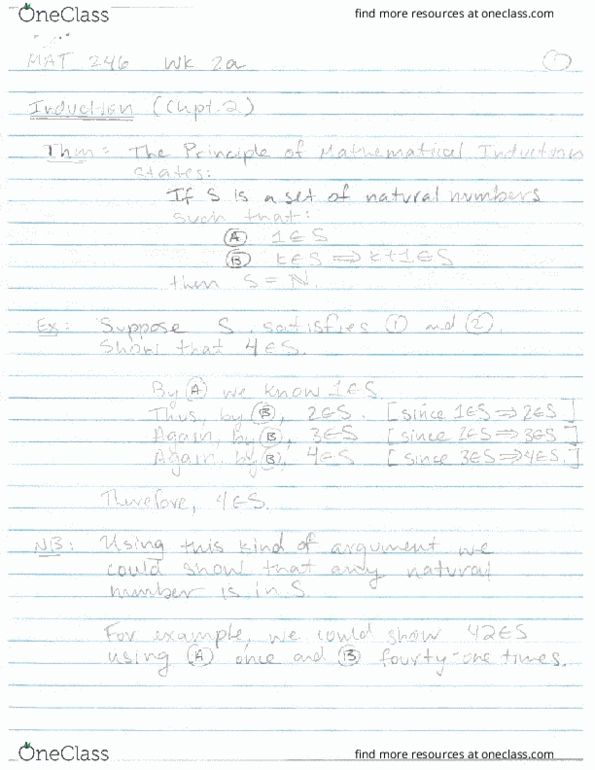 OneClass
find more resources at oneclass.com
MAT 246 Wk 2a
Induction (Chpt. 2)
Thm: The Principle of Mathematical Induction
states:
If S is a set of natural numbers
such that:
Ⓐ 1∈S
Ⓑ k∈S ⟹ k+1∈S
then S = ℕ.
Ex: Suppose S satisfies ① and ②.
Show that 4∈S.
By Ⓐ we know 1∈S
Thus, by Ⓑ, 2∈S. [since 1∈S ⟹ 2∈S]
Again, by Ⓑ, 3∈S [since 2∈S ⟹ 3∈S]
Again, by Ⓑ, 4∈S [since 3∈S ⟹ 4∈S.]
Therefore, 4∈S.
NB: Using this kind of argument we
could show that any natural
number is in S.
For example, we could show 42∈S
using Ⓐ once and Ⓑ fourty-one times.
OneClass
find more resources at oneclass.com